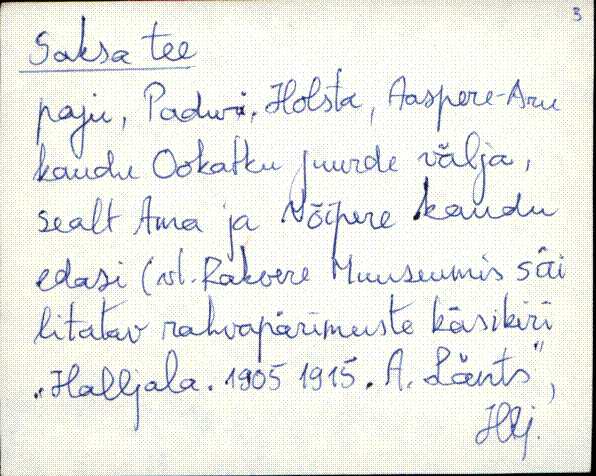 3
Saksa tee
paju, Paduvi, Holsta, Aaspere-Aru
kaudu Ookatku juurde välja,
sealt Ama ja Võipere kaudu
edasi (vt. Rakvere Muuseumis säi
litatav rahvapärimuste käsikiri
"Haljala. 1905 1915. A. Länts",
Hlj.